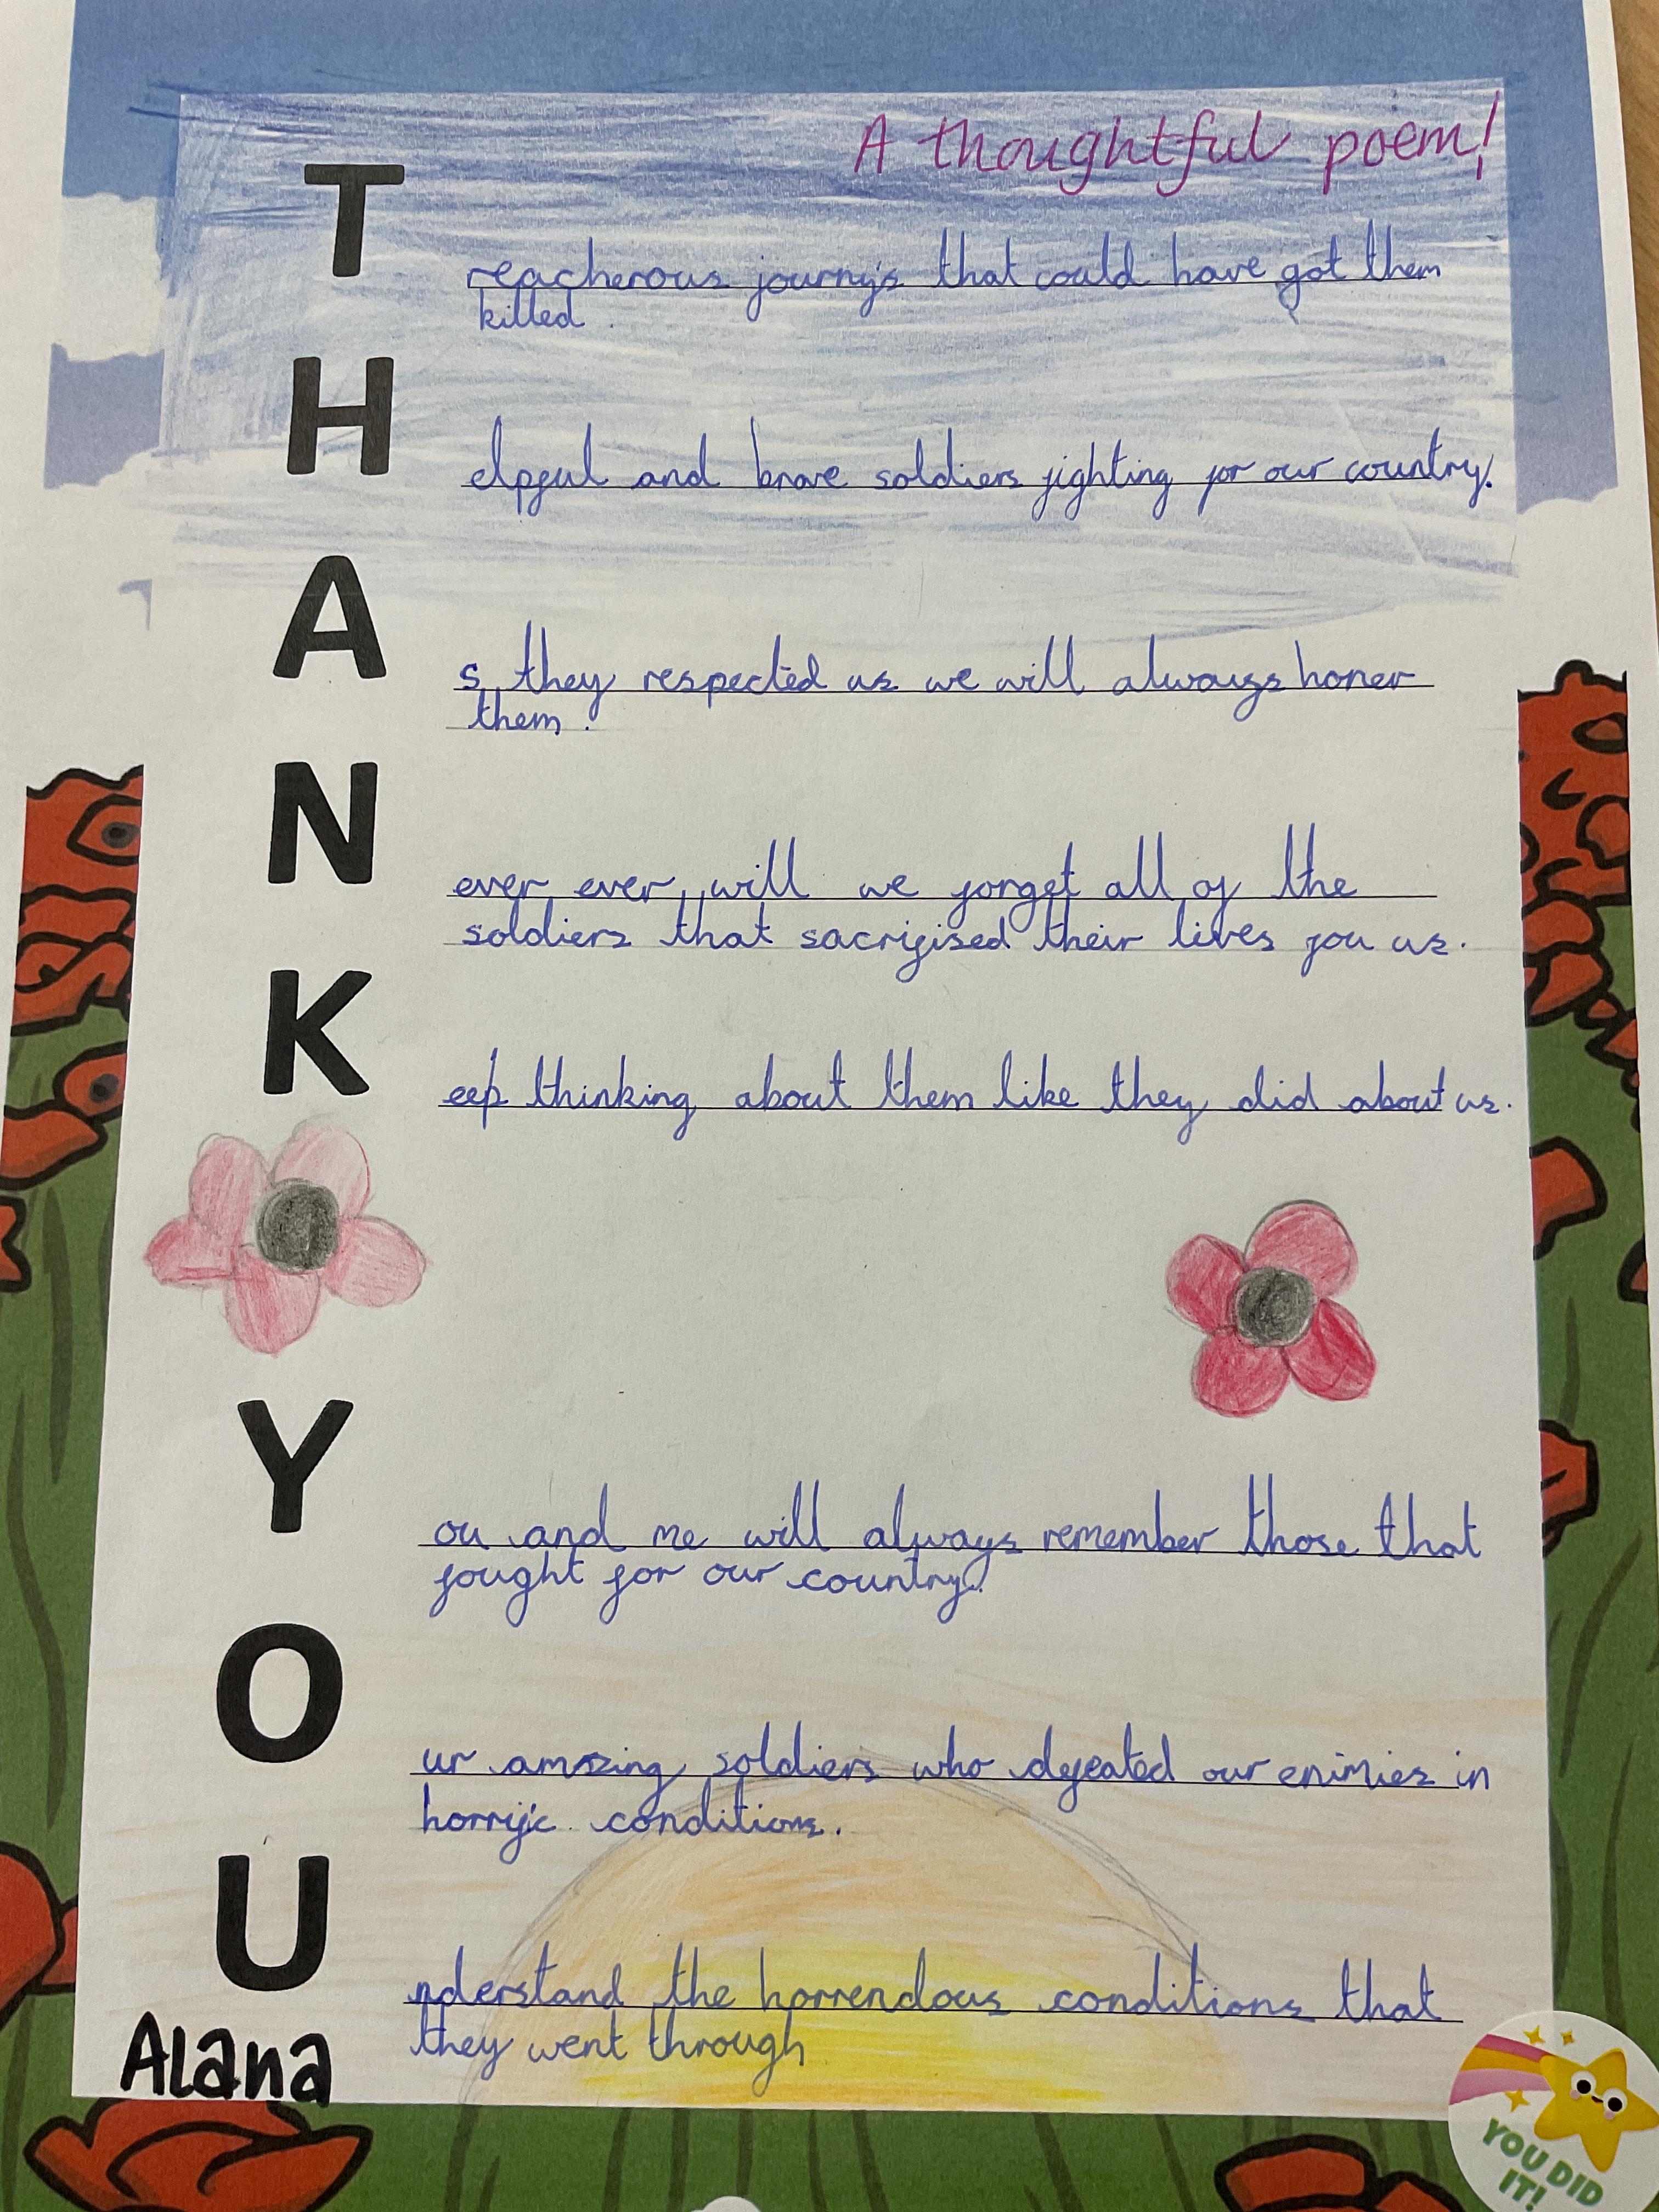 A thoughtful poem!
Treacherous journy's that could have got them
killed.
Helpful and brave soldiers fighting for our country.
As they respected us we will always honer
them.
Never ever will we forget all of the
soldiers that sacrifised their lives fou us.
Keep thinking about them like they did about us.
You and me will always remember those that
fought for our country.
Our amazing soldiers who defeated our enimies in
horrific conditions.
Understand the horrendous conditions that
they went through
Alana
YOU DID
IT!